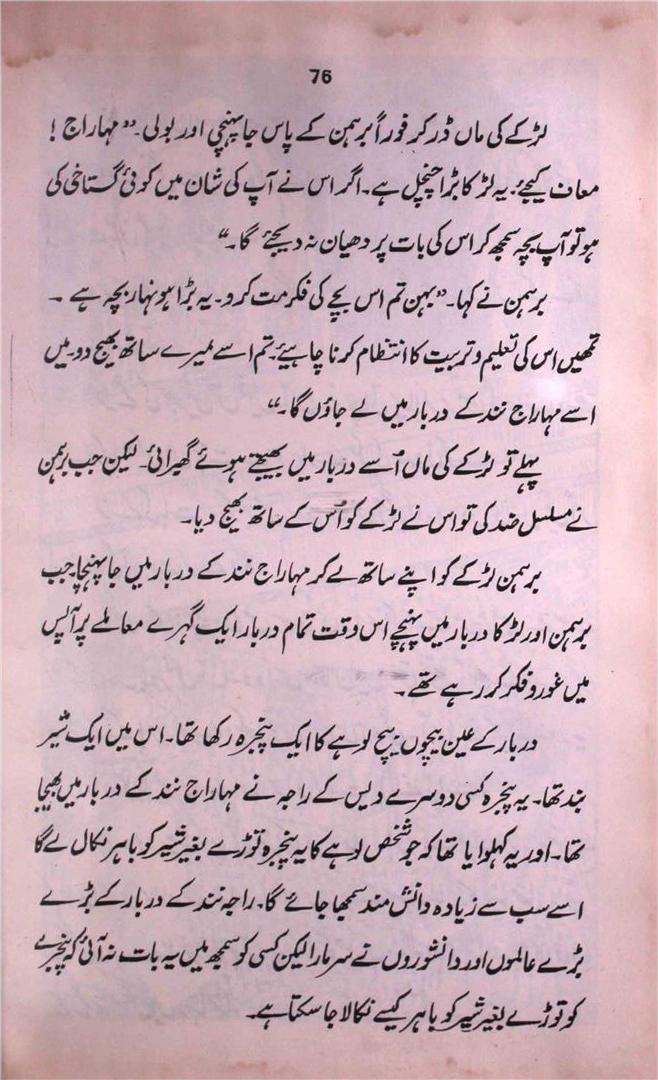 76
لڑکے کی ماں ڈر کر فوراً برہمن کے پاس جا پہنچی اور بولی۔ ”مہاراج!
معاف کیجئے۔ یہ لڑکا بڑا چنچل ہے۔ اگر اس نے آپ کی شان میں کوئی گستاخی کی
ہو تو آپ بچہ سمجھ کر اس کی بات پر دھیان نہ دیجئے گا۔“
برہمن نے کہا۔ ”بہن تم اس بچے کی فکر مت کرو۔ یہ بڑا ہونہار بچہ ہے ۔
تمھیں اس کی تعلیم و تربیت کا انتظام کرنا چاہیئے۔ تم اسے میرے ساتھ بھیج دو۔ میں
اسے مہاراج نند کے دربار میں لے جاؤں گا۔“
پہلے تو لڑکے کی ماں اُسے دربار میں بھیجتے ہوئے گھبرائی۔ لیکن جب برہمن
نے مسلسل ضد کی تو اس نے لڑکے کو اُس کے ساتھ بھیج دیا۔
برہمن لڑکے کو اپنے ساتھ لے کر مہاراج نند کے دربار میں جا پہنچا۔ جب
برہمن اور لڑکا دربار میں پہنچے اس وقت تمام دربار ایک گہرے معاملے پر آپس
میں غور و فکر کر رہے تھے۔
دربار کے عین بیچوں بیچ لوہے کا ایک پنجرہ رکھا تھا۔ اس میں ایک شیر
بند تھا۔ یہ پنجرہ کسی دوسرے دیس کے راجہ نے مہاراج نند کے دربار میں بھیجا
تھا۔ اور یہ کہلوایا تھا کہ جو شخص لوہے کا یہ پنجرہ توڑے بغیر شیر کو باہر نکال لے گا
اسے سب سے زیادہ دانش مند سمجھا جائے گا۔ راجہ نند کے دربار کے بڑے
بڑے عالموں اور دانشوروں نے سر مارا لیکن کسی کو سمجھ میں یہ بات نہ آئی کہ پنجرے
کو توڑے بغیر شیر کو باہر کیسے نکالا جا سکتا ہے۔